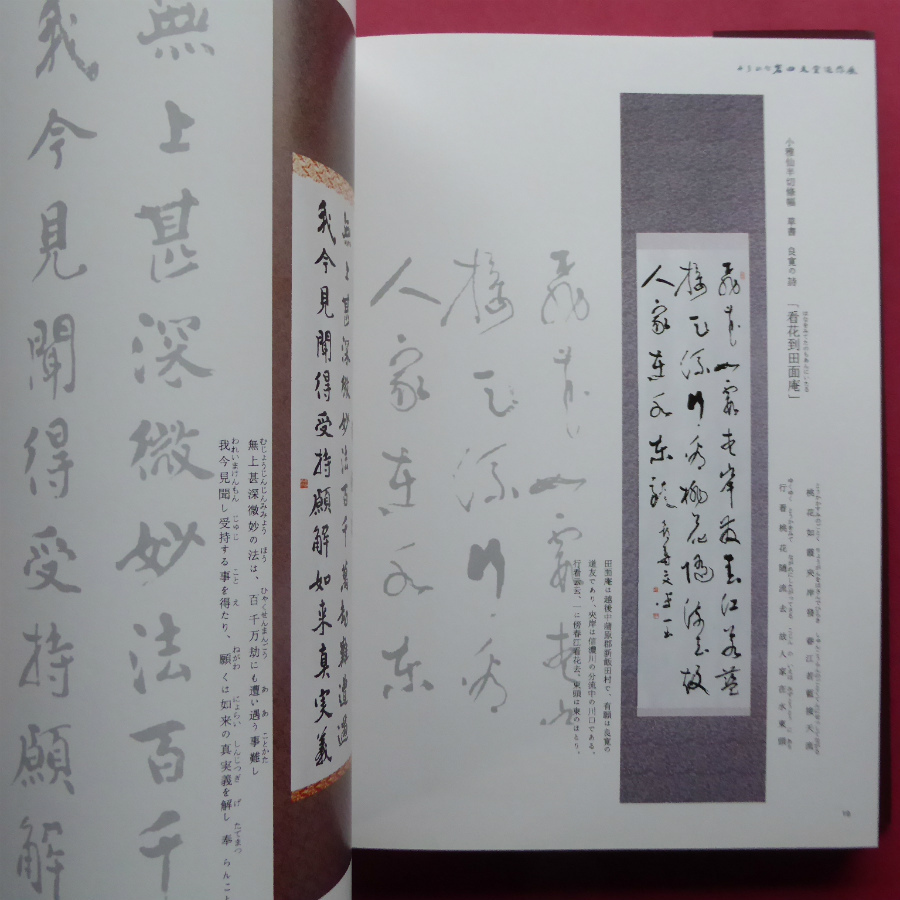 小雅仙半切條幅　草書　良寛の詩
「看花到田面庵」
桃花如霞夾岸發　春江若藍接天流
行看桃花隨流去　故人家在水東頭
桃花如霞夾岸發春江若藍
接天流行看桃花隨流去故
人家在水東頭
田面庵は越後中蒲原郡新飯田村で、有願は良寛の
道友であり、夾岸は信濃川の分流中の川口である。
行看云云、一に傍春江看花去。東頭は東のほとり。
無上甚深微妙法百千萬劫難遭遇
我今見聞得受持願解如来真実義
無上甚深微妙の法は、百千万劫にも遭い遇う事難し
我今見聞し受持する事を得たり、願くは如来の真実義を解し奉らんこと
無上甚深微妙法百千
我今見聞得受持願解